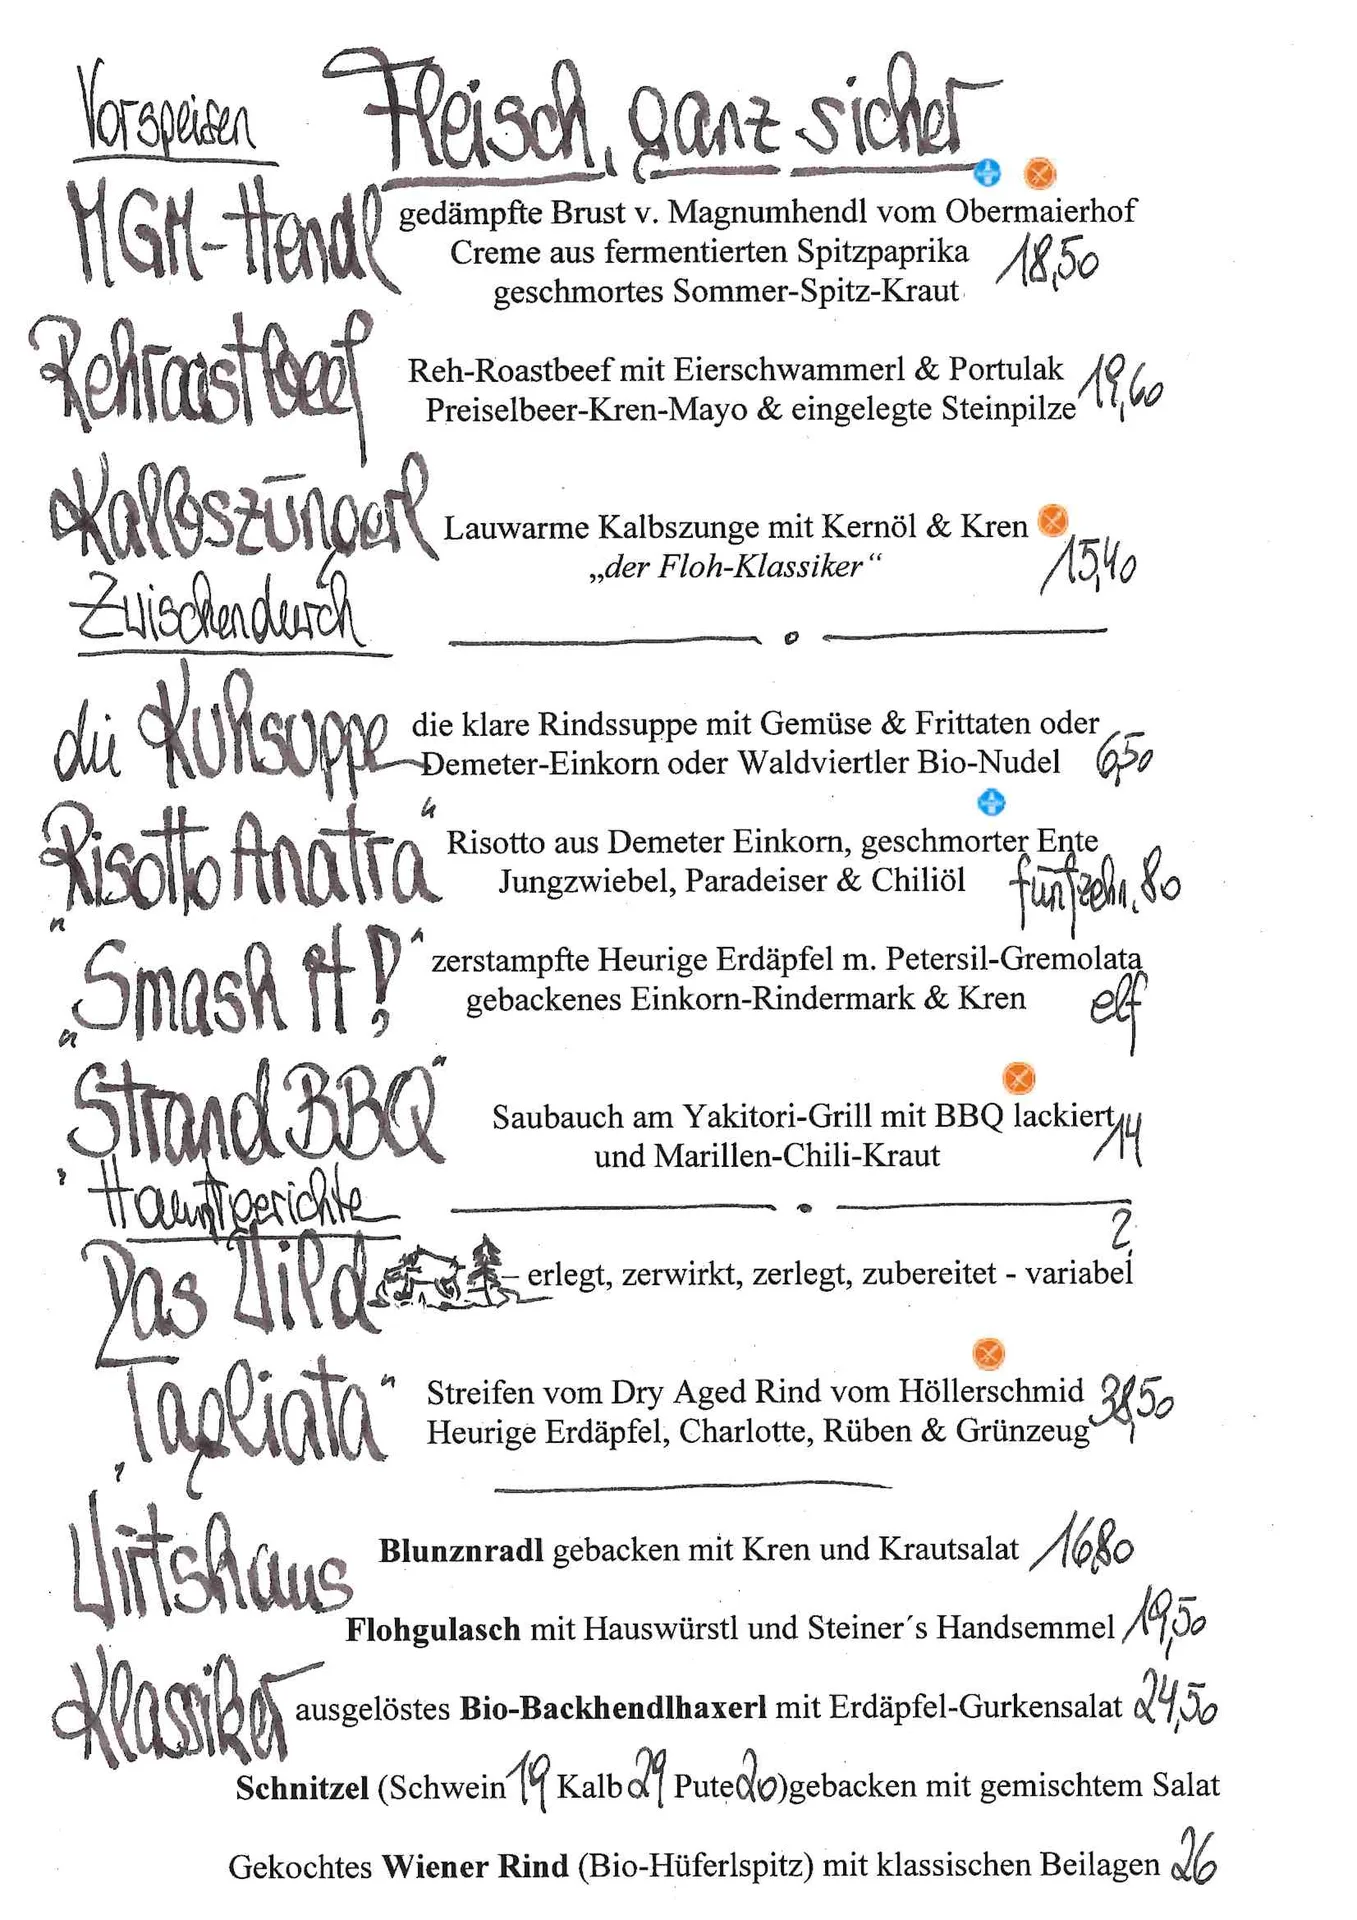 Vorspeisen
Fleisch, ganz sicher
MGM-Hendl
gedämpfte Brust v. Magnumhendl vom Obermaierhof
Creme aus fermentierten Spitzpaprika 18,50
geschmortes Sommer-Spitz-Kraut
Rehroastbeef
Reh-Roastbeef mit Eierschwammerl & Portulak 19,60
Preiselbeer-Kren-Mayo & eingelegte Steinpilze
Kalbszüngerl
Lauwarme Kalbszunge mit Kernöl & Kren
„der Floh-Klassiker“ 15,40
Zwischendurch
die Kuhsuppe
die klare Rindssuppe mit Gemüse & Frittaten oder
Demeter-Einkorn oder Waldviertler Bio-Nudel 6,50
„Risotto Anatra“
Risotto aus Demeter Einkorn, geschmorter Ente
Jungzwiebel, Paradeiser & Chiliöl fünfzehn,80
„Smash it!“
zerstampfte Heurige Erdäpfel m. Petersil-Gremolata
gebackenes Einkorn-Rindermark & Kren elf
„Strand BBQ“
Saubauch am Yakitori-Grill mit BBQ lackiert 14
und Marillen-Chili-Kraut
Hauptgerichte
Das Wild
– erlegt, zerwirkt, zerlegt, zubereitet - variabel ?
„Tagliata“
Streifen vom Dry Aged Rind vom Höllerschmid 38,50
Heurige Erdäpfel, Charlotte, Rüben & Grünzeug
Wirtshaus
Blunznradl gebacken mit Kren und Krautsalat 16,80
Flohgulasch mit Hauswürstl und Steiner´s Handsemmel 19,50
Klassiker
ausgelöstes Bio-Backhendlhaxerl mit Erdäpfel-Gurkensalat 24,50
Schnitzel (Schwein 19 Kalb 29 Pute 20)gebacken mit gemischtem Salat
Gekochtes Wiener Rind (Bio-Hüferlspitz) mit klassischen Beilagen 26